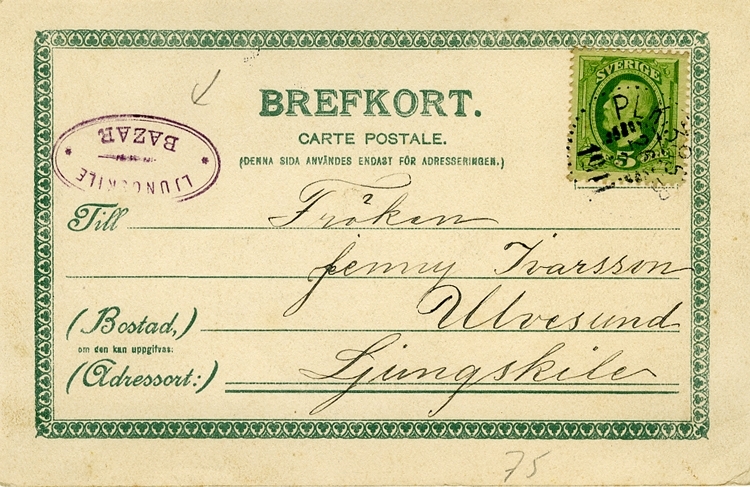 SVERIGE
5
BREFKORT.
CARTE POSTALE.
(DENNA SIDA ANVÄNDES ENDAST FÖR ADRESSERINGEN.)
LJUNGSKILE
BAZAR
Till Fröken
Jenny Ivarsson
(Bostad,) Ulvesund
om den kan uppgifvas:
(Adressort:) Ljungskile
75